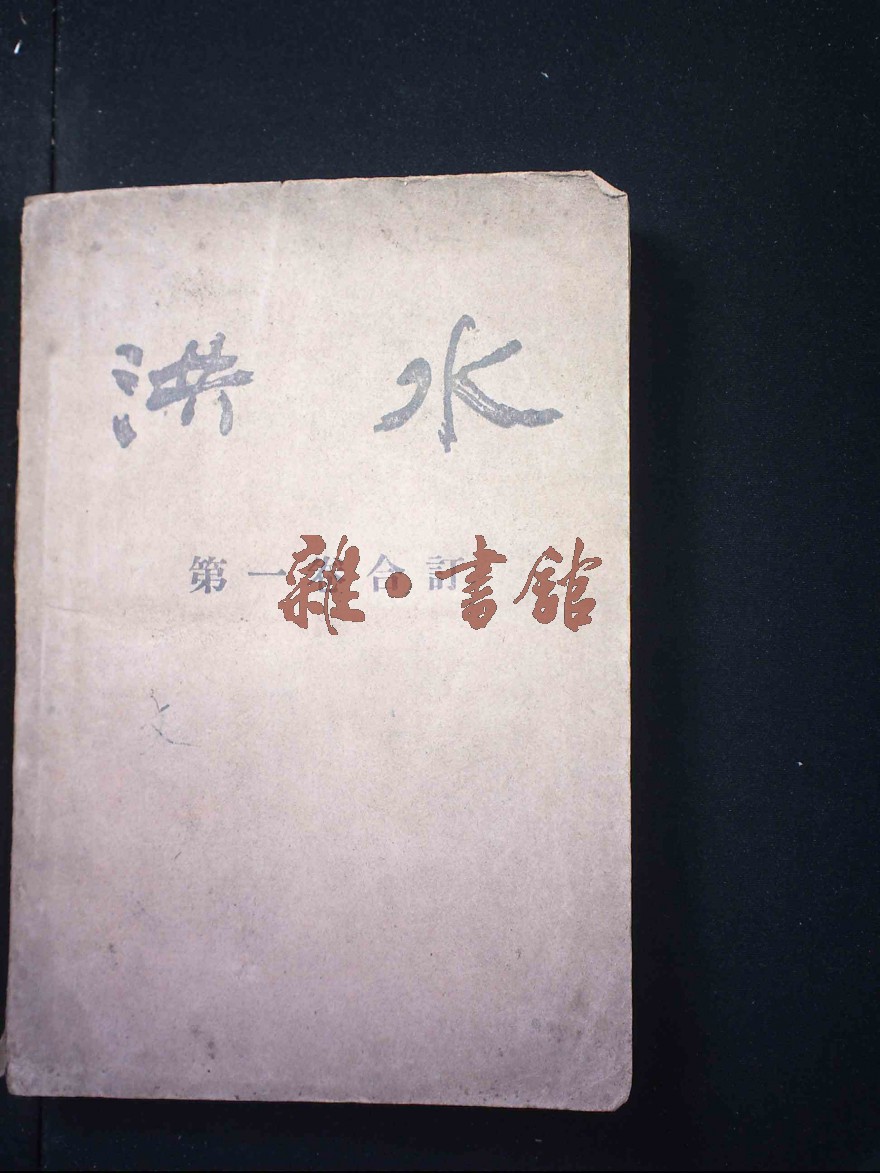 洪水
第一卷合訂
雜·書館